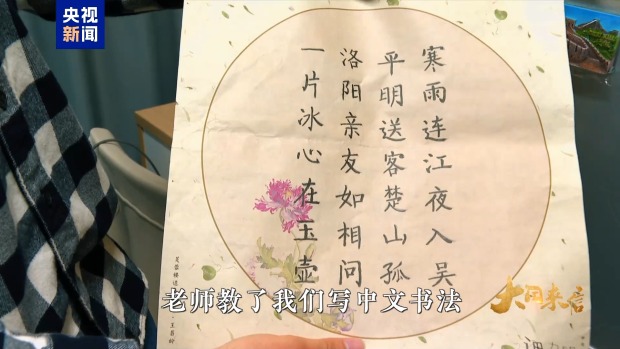 央视
新闻
寒雨连江夜入吴
平明送客楚山孤
洛阳亲友如相问
一片冰心在玉壶
芙蓉楼送
王昌龄
老师教了我们写中文书法
大国来信